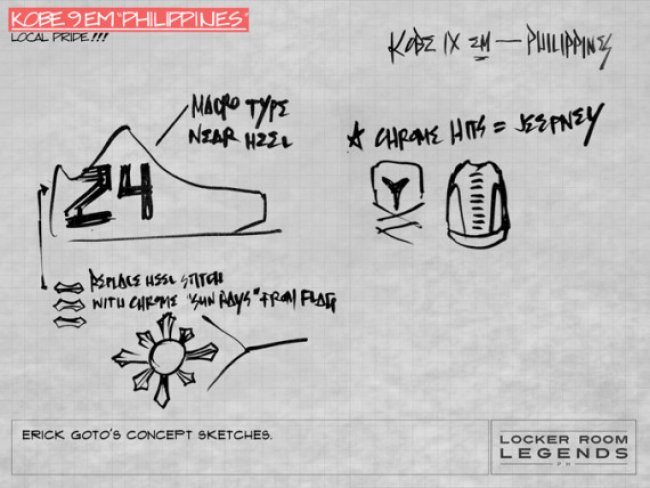 KOBE 9 EM "PHILIPPINES"
LOCAL PRIDE!!!
KOBE IX EM — PHILIPPINES
MACRO TYPE
NEAR HEEL
☆ CHROME HITS = JEEPNEY
24
REPLACE HEEL STITCH
WITH CHROME "SUN RAYS" FROM FLAG
ERICK GOTO'S CONCEPT SKETCHES.
LOCKER ROOM
LEGENDS
PH